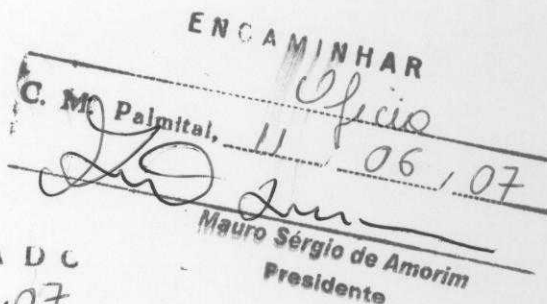 ENCAMINHAR
Ofício
C. M. Palmital, 11 / 06 / 07
Mauro Sérgio de Amorim
Presidente
A D C
.07